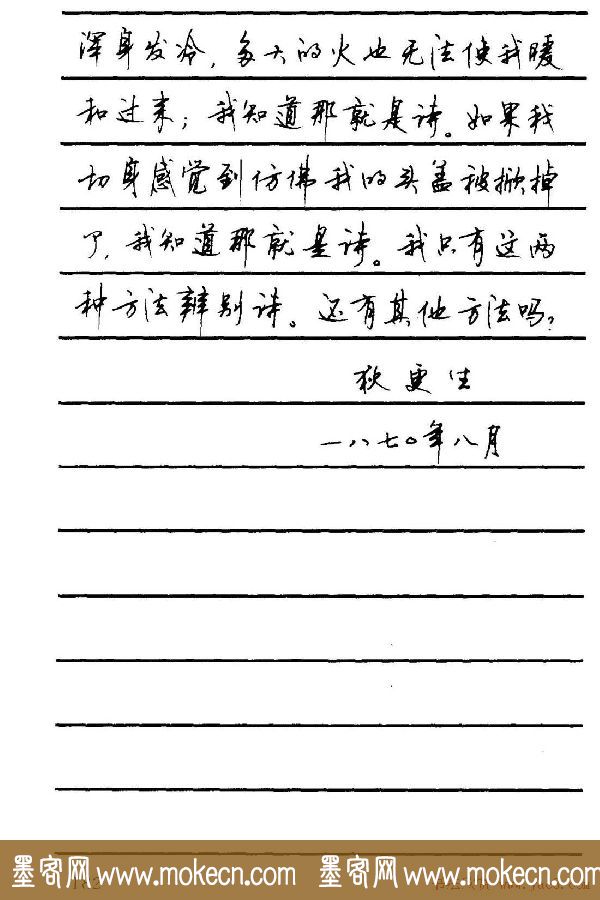 浑身发冷，多大的火也无法使我暖
和过来；我知道那就是诗。如果我
切身感觉到仿佛我的头盖被掀掉
了，我知道那就是诗。我只有这两
种方法辨别诗。还有其他方法吗？
狄更生
一八七〇年八月
墨客网 www.mokecn.com 墨客网 www.mokecn.com